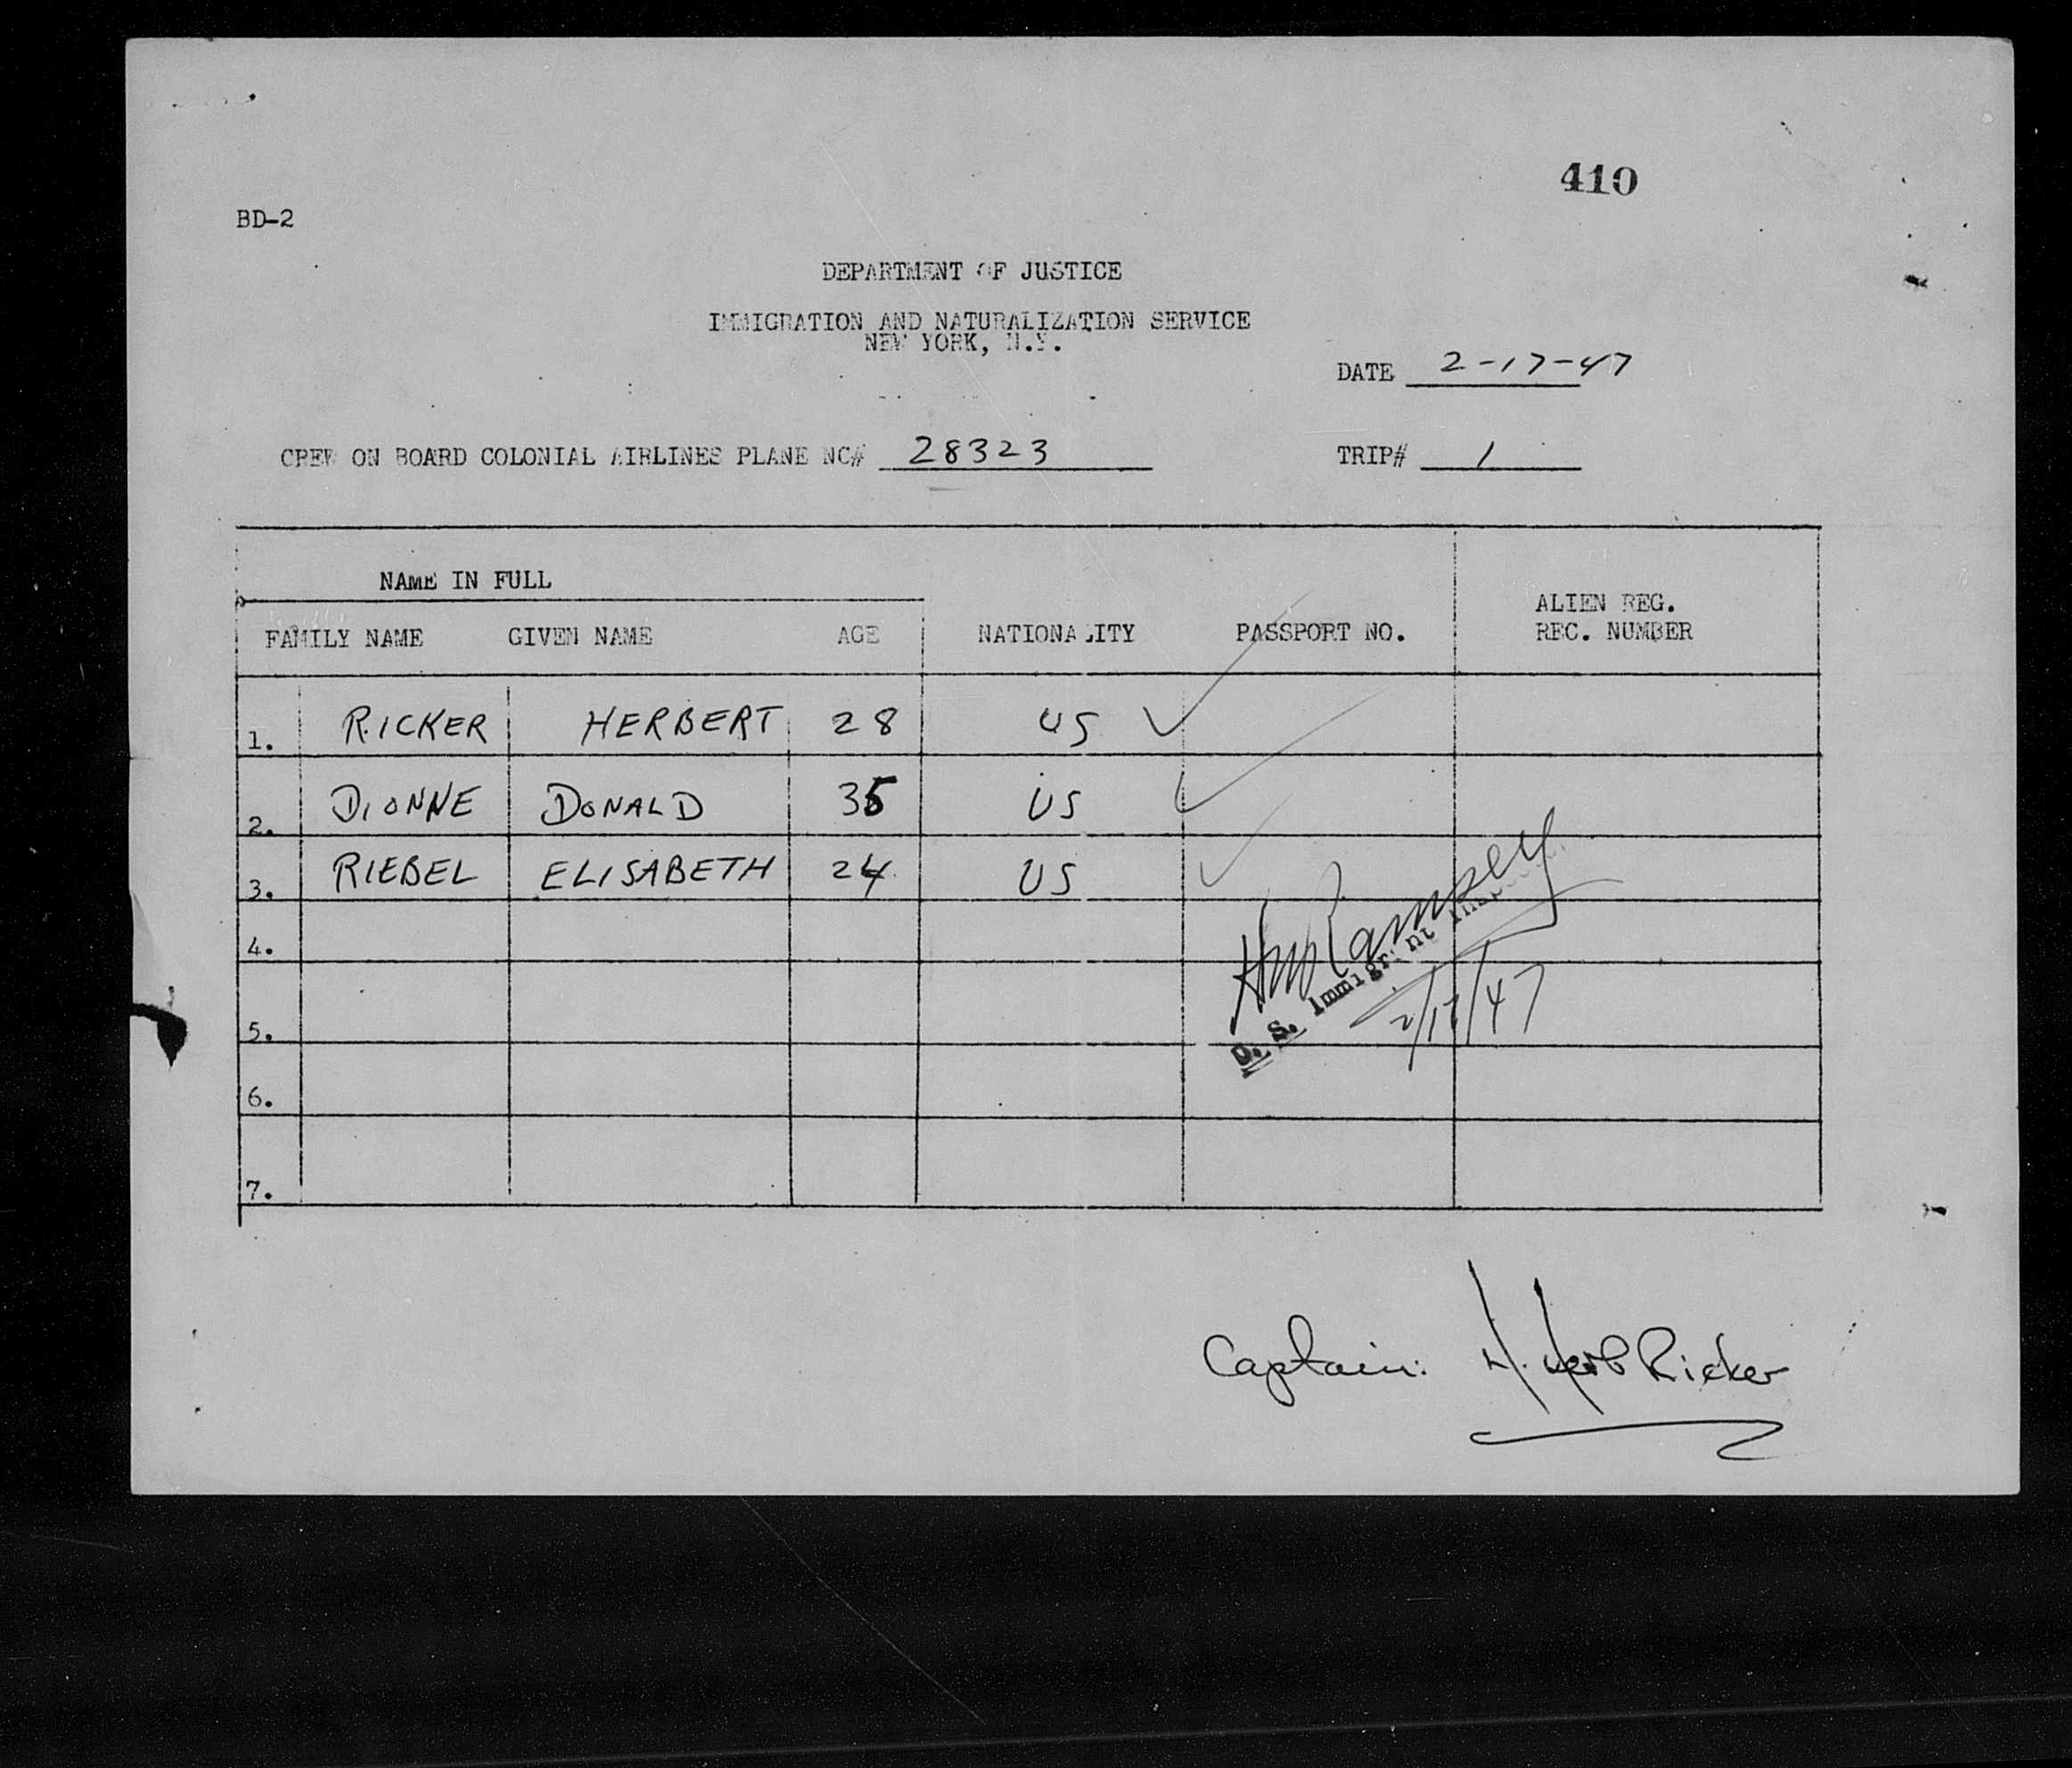 410
BD-2
DEPARTMENT OF JUSTICE
IMMIGRATION AND NATURALIZATION SERVICE
NEW YORK, N.Y.
DATE 2-17-47
CREW ON BOARD COLONIAL AIRLINES PLANE NC# 28323 TRIP# 1
NAME IN FULL
FAMILY NAME GIVEN NAME AGE NATIONALITY PASSPORT NO. ALIEN REG. REC. NUMBER
1. RICKER HERBERT 28 US
2. DIONNE DONALD 35 US
3. RIEBEL ELISABETH 24 US
4.
5.
6.
7.
Rampsey
U. S. Immigrant Inspector
2/17/47
Captain: H. Herb Ricker